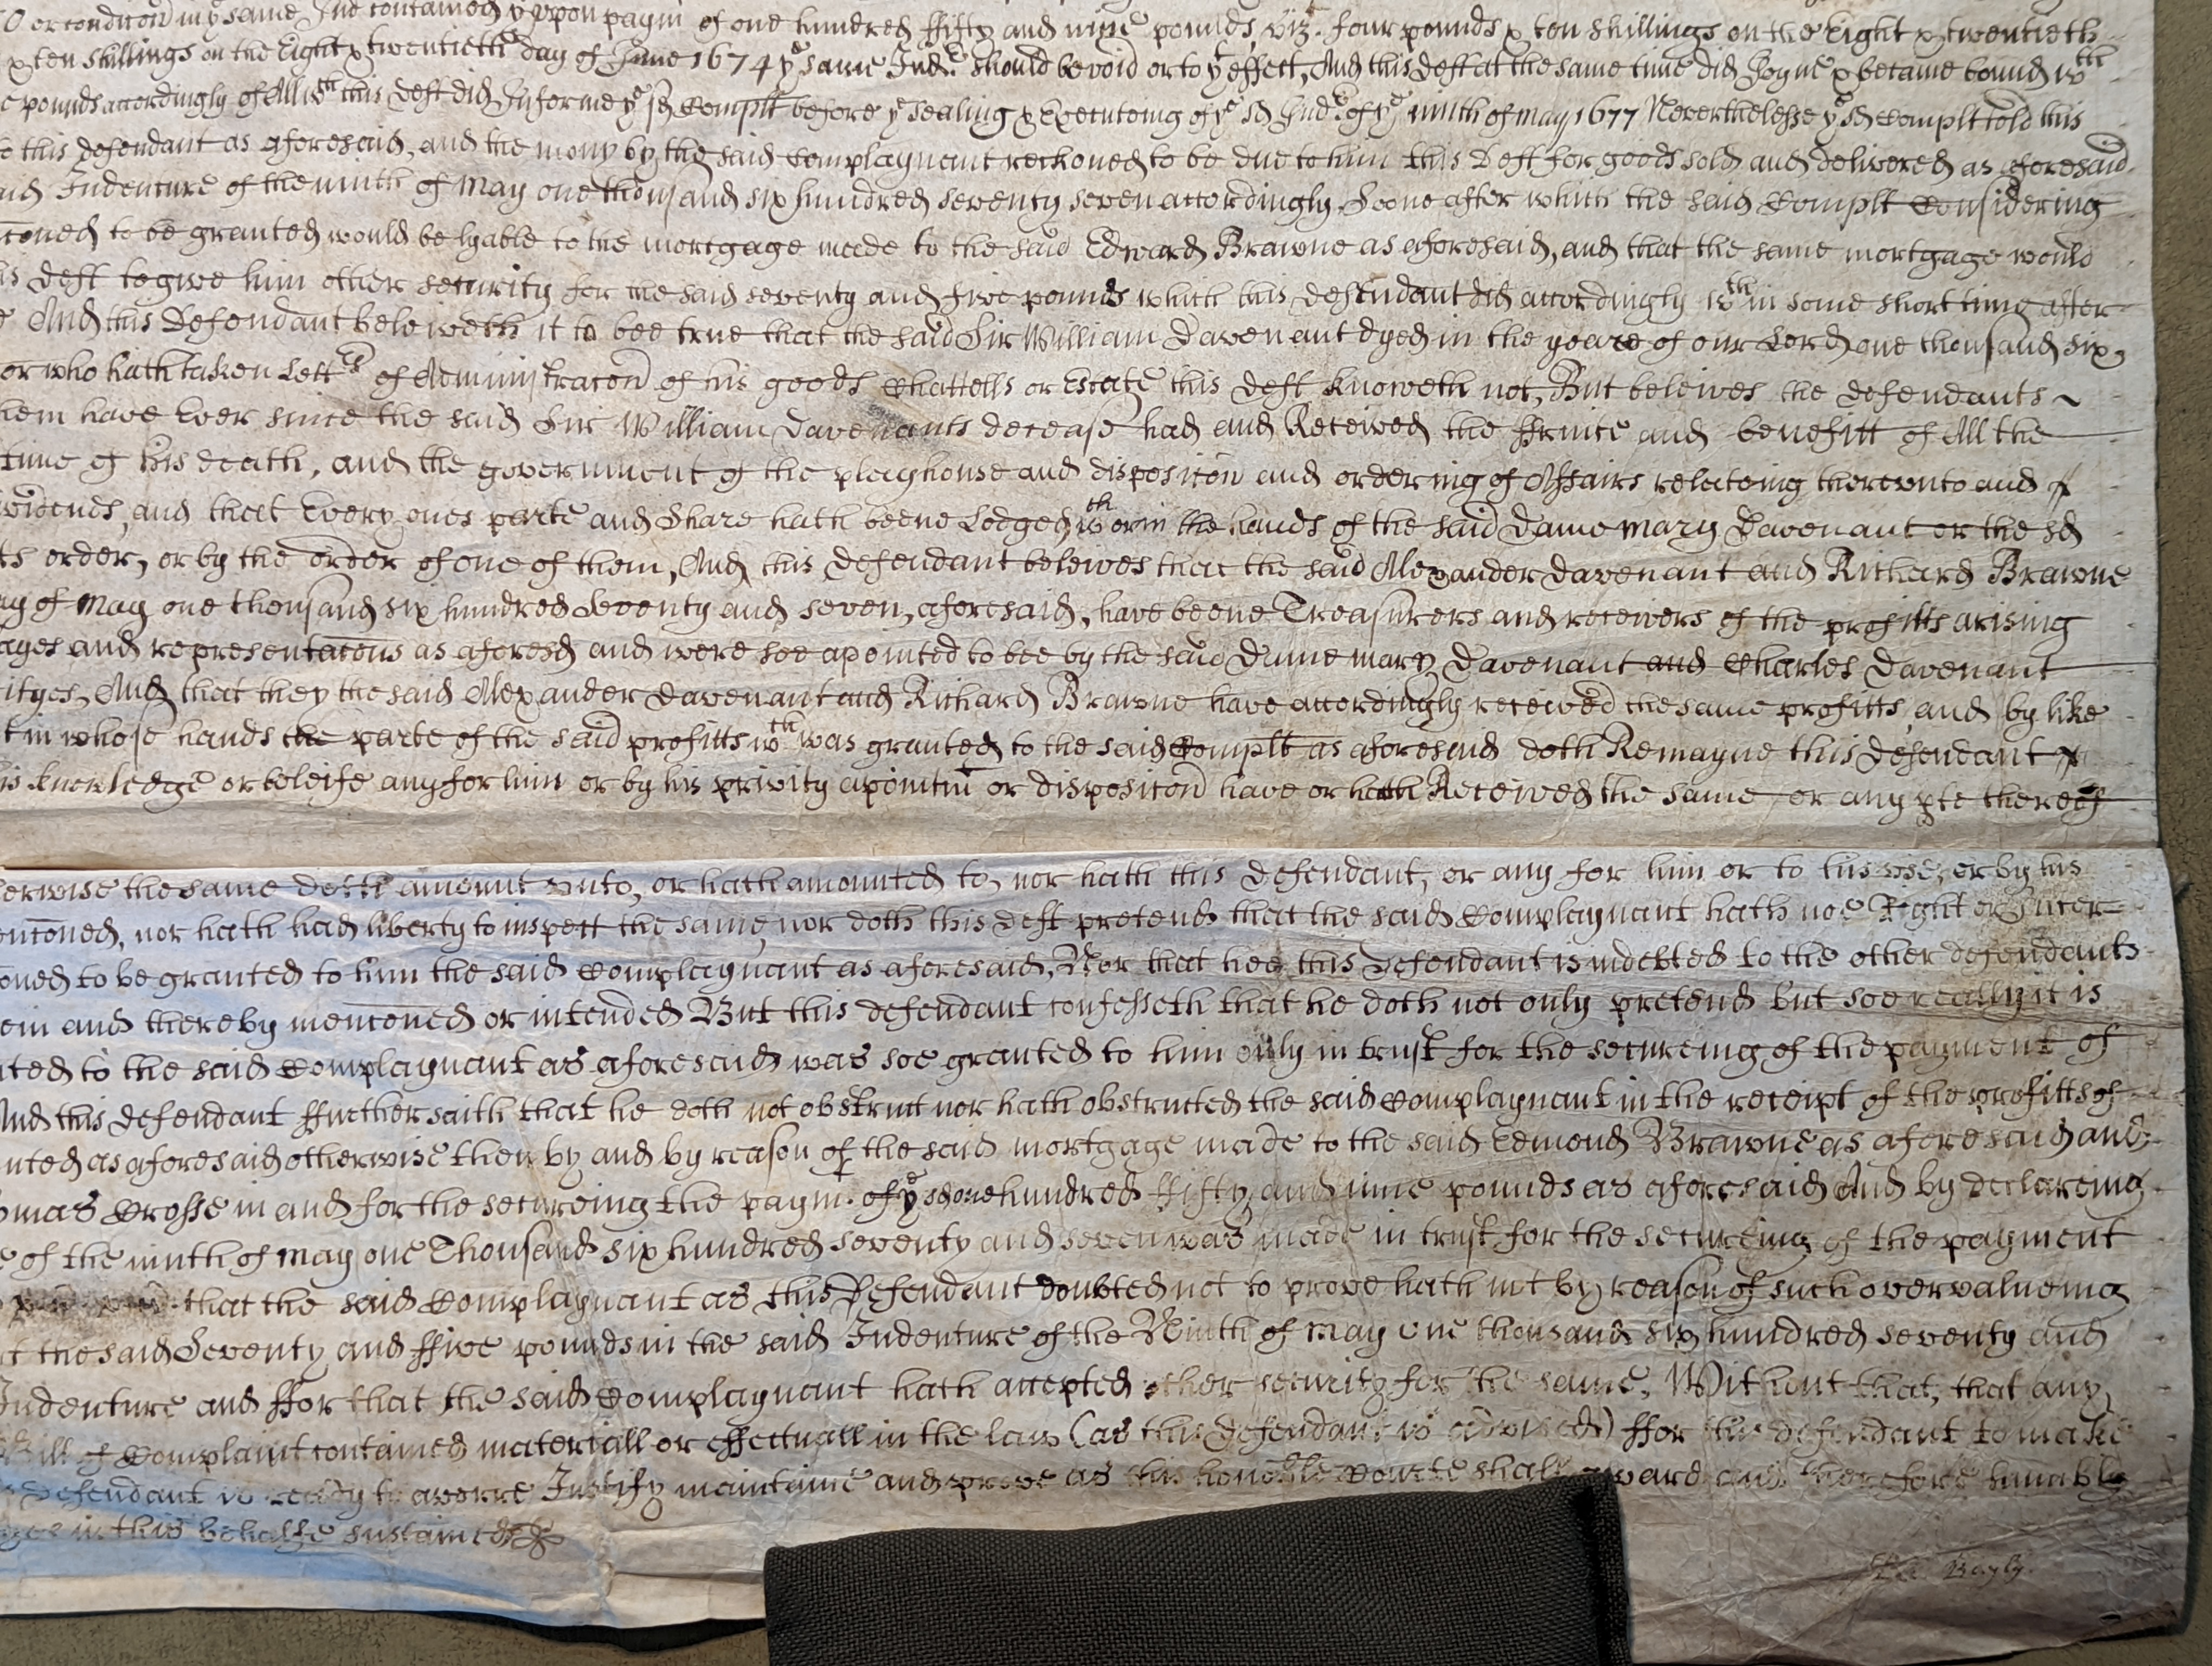 or condic̃on in yᵉ same Ind contained yᵗ vpon paym̃ of one hundred ffifty and nyne pounds, viz. four pounds & ten shillings on the Eight & twentieth
& ten shillings on the Eight & twentieth day of June 1674 yᵉ same Indʳᵉ should be void or to yᵗ effect, And this Deft at the same time did Joyne & became bound wᵗʰ
pounds accordingly of All wᶜʰ this Deft did Informe yᵉ sd Complt before yᵉ sealing & Executeing of yᵉ sd Indʳᵉ of yᵉ ninth of may 1677 Neverthelesse yᵉ sd Complt told this
this defendant as aforesaid, and the mony by the said Complaynant reckoned to be due to him this Deft for goods sold and delivered as aforesaid
Indenture of the ninth of May one thousand six hundred seventy seven accordingly Soone after which the said Complt Considering
to be granted would be lyable to the mortgage made to the said Edward Brawne as aforesaid, and that the same mortgage would
Deft to give him other security for the said seventy and five pounds which this defendant did accordingly wᵗʰin some short time after
And this Defendant beleiveth it to bee true that the said Sir William Davenant dyed in the yeare of our Lord one thousand six
or who hath taken Lettʳˢ of Administrac̃on of his goods Chattells or Estate this Deft knoweth not, But beleives the defendants ~
have Ever since the said Sir William Davenants decease had and Received the ffruite and benefitt of All the
time of his death, and the government of the playhouse and disposic̃on and ordering of Affairs relateing thereunto and
and that Every ones parte and Share hath beene Lodged wᵗʰ or in the hands of the said Dame Mary Davenant or the sd
order, or by the order of one of them, And this defendant beleives that the said Alexander Davenant and Richard Brawne
of May one thousand six hundred Seventy and seven, aforesaid, have beene Treasurers and receivers of the profitts arising
and representac̃ons as aforesd and were soe apointed to bee by the said Dame mary Davenant and Charles Davenant
And that they the said Alexander Davenant and Richard Brawne have accordingly received the same profitts and by like
in whose hands the parte of the said profitts wᶜʰ was granted to the said Complt as aforesaid doth Remayne this defendant
knowledge or beleife any for him or by his privity apointm̃ᵗ or disposic̃on have or hath Received the same or any pte thereof
the same doth amount vnto, or hath amounted to, nor hath this defendant, or any for him or to his vse, or by his
nor hath had liberty to inspect the same, nor doth this Deft pretend that the said Complaynant hath noe Right or Inter
to be granted to him the said Complaynant as aforesaid, Nor that hee this Defendant is indebted to the other defendants
and thereby menc̃oned or intended But this defendant confesseth that he doth not only pretend but soe really it is
to the said Complaynant as aforesaid was soe granted to him only in trust for the secureing of the payment of
And this defendant ffurther saith that he doth not obstruct nor hath obstructed the said Complaynant in the receipt of the profitts of
as aforesaid otherwise then by and by reason of the said mortgage made to the said Edmond Brawne as aforesaid and
Crosse in and for the secureing the paym̃ᵗ of yᵉ sd one hundred ffifty and nine pounds as aforesaid And by declareing
of the ninth of May one Thousand six hundred seventy and seven was made in trust for the secureing of the payment
that the said Complaynant as this Defendant doubted not to prove hath not by reason of such overvalueing
the said Seventy and ffive pounds in the said Indenture of the Ninth of May one thousand six hundred seventy and
Indenture and ffor that the said Complaynant hath accepted other security for the same, Without that, that any
Bill of Complaint contained materiall or effectuall in the law (as this defendant is advised) ffor this defendant to make
defendant is ready to averre Justify maintaine and prove as this honoᵇˡᵉ Courte shall award and therefore humbly
in this behalfe susteined &c
Bayly